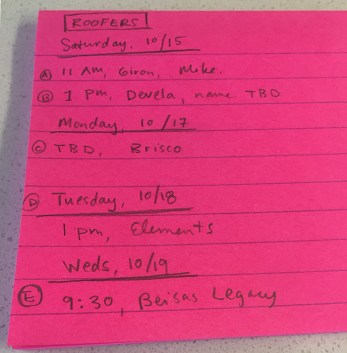 ROOFERS
Saturday, 10/15
Ⓐ 11 AM, Giron, Mike.
Ⓑ 1 pm, Develа, name TBD
Monday, 10/17
Ⓒ TBD, Brisco
Ⓓ Tuesday, 10/18
1 pm, Elements
Weds, 10/19
Ⓔ 9:30, Beisas Legacy